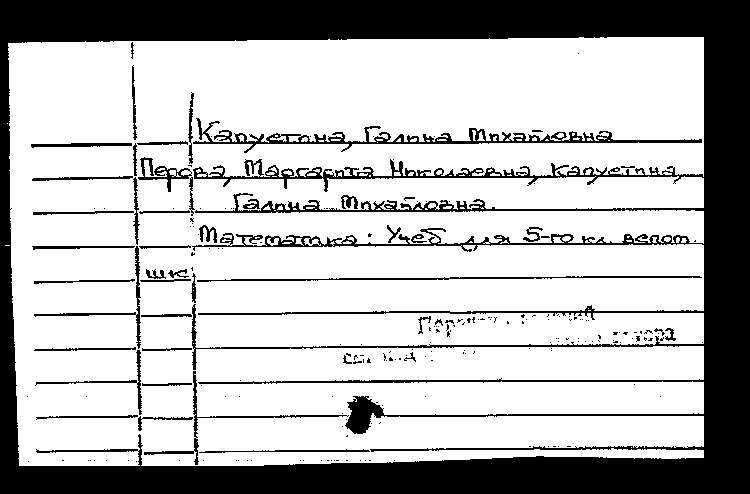 Капустина, Галина Михайловна
Перова, Маргарита Николаевна, Капустина,
Галина Михайловна.
Математика: Учеб для 5-го кл. вспом.
шк.
см. под
автора